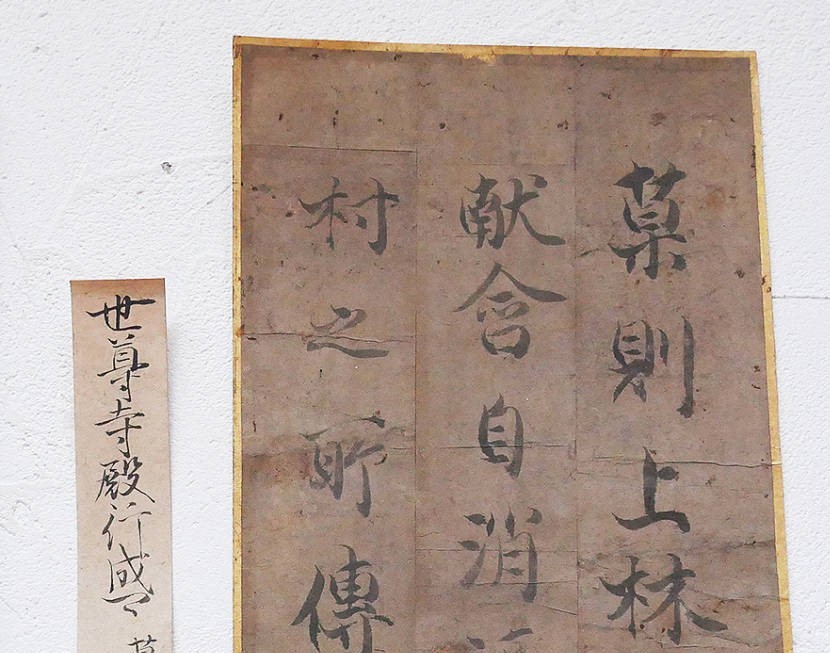 菓則上林
献含自消
村之所傳
世尊寺殿行成